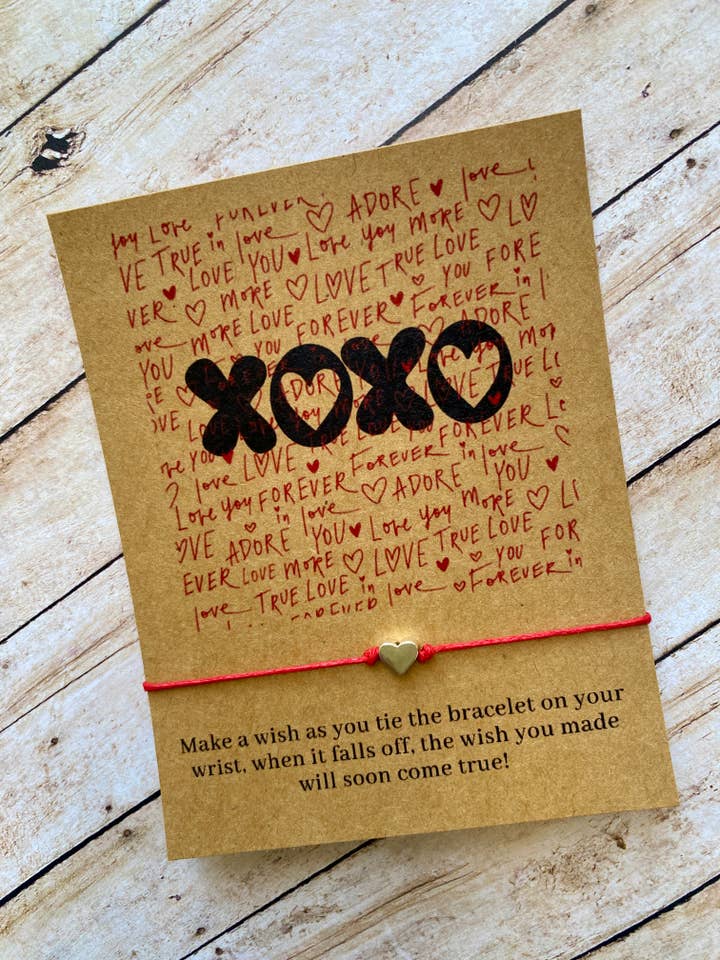 you Love FOREVER
ADORE love
VE TRUE in love Love you MORE LO
LOVE YOU LOVE TRUE LOVE
VER MORE YOU FORE
ove MORE LOVE YOU FOREVER FOREVER in
YOU ADORE
XOXO
VE LO
YOU LOVE
love LOVE FOREVER FOREVER Lo
Love you FOREVER in love ADORE YOU
OVE ADORE YOU Love you MORE LI
EVER LOVE MORE LOVE TRUE LOVE YOU FOR
love TRUE LOVE in love FOREVER in
FOREVER
Make a wish as you tie the bracelet on your
wrist, when it falls off, the wish you made
will soon come true!